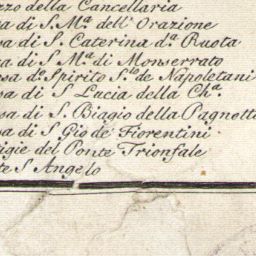 zzo della Cancellaria
sa di S. Mª. dell' Orazione
sa di S. Caterina dª. Ruota
sa di S. Mª di Monserrato
esa dº. Spirito Sᵗº. de Napoletani
esa di S Lucia della Chª.
sa di S. Biagio della Pagnotta
sa di S Gio de Fiorentini
tigie del Ponte Trionfale
te S Angelo